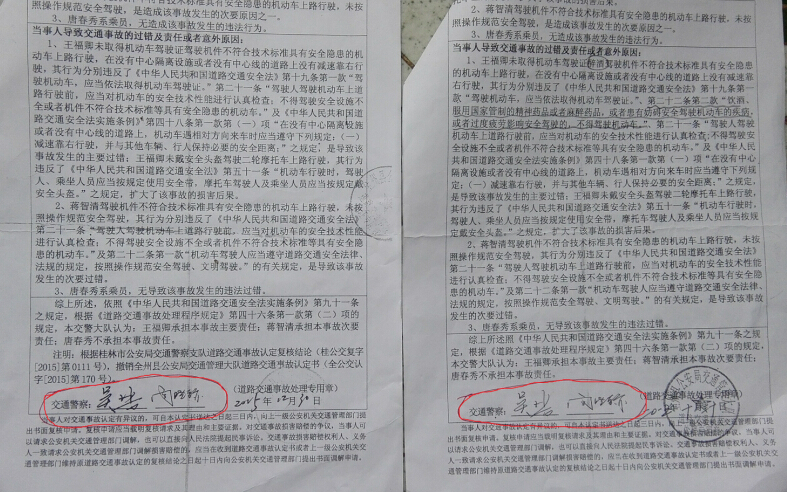 操作规范安全驾驶，是造成该事故发生的次要原因之一。
3、唐春秀系乘员，无造成该事故发生的违法行为。
当事人导致交通事故的过错及责任或者意外原因：
1、王福卿未取得机动车驾驶证驾驶机件不符合技术标准具有安全隐患的
机动车上路行驶，在没有中心隔离设施或者没有中心线的道路上没有减速靠右行
驶，其行为分别违反了《中华人民共和国道路交通安全法》第十九条第一款“驾
驶机动车，应当依法取得机动车驾驶证。”第二十一条“驾驶人驾驶机动车上道
路行驶前，应当对机动车的安全技术性能进行认真检查；不得驾驶安全设施不
全或者机件不符合技术标准等具有安全隐患的机动车。”及《中华人民共和国道路交通
安全法实施条例》第四十八条第一款第（一）项“在没有中心隔离设施
或者没有中心线的道路上，机动车遇相对方向来车时应当遵守下列规定：（一）
减速靠右行驶，并与其他车辆、行人保持必要的安全距离；”之规定，是导致该
事故发生的主要过错；王福卿未戴安全头盔驾驶二轮摩托车上路行驶，其行为
违反了《中华人民共和国道路交通安全法》第五十一条“机动车行驶时，驾驶
人、乘坐人员应当按规定使用安全带，摩托车驾驶人及乘坐人员应当按规定戴
安全头盔。”之规定，扩大了该事故的损害后果。
2、蒋智清驾驶机件不符合技术标准具有安全隐患的机动车上路行驶，未按
照操作规范安全驾驶，其行为分别违反了《中华人民共和国道路交通安全法》
第二十一条“驾驶人驾驶机动车上道路行驶前，应当对机动车的安全技术性能
进行认真检查；不得驾驶安全设施不全或者机件不符合技术标准等具有安全隐患
的机动车。”及第二十二条第一款“机动车驾驶人应当遵守道路交通安全法律、
法规的规定，按照操作规范安全驾驶、文明驾驶。”的有关规定，是导致该事故
发生的次要过错。
3、唐春秀系乘员，无导致该事故发生的过错。
综上所述，依照《中华人民共和国道路交通安全法实施条例》第九十一条
之规定，根据《道路交通事故处理程序规定》第四十六条第一款第（二）项的
规定，本交警大队认为：王福卿承担本事故主要责任；蒋智清承担本事故次要
责任；唐春秀不承担本事故责任。
注明：根据桂林市公安局交通警察支队道路交通事故认定复核结论（桂公交复字
[2015]第0111号），撤销全州县公安局交通管理大队道路交通事故认定书（全公交认
字[2015]第170号）。
（道路交通事故处理专用章）
交通警察：
当事人对交通事故认定有异议的，可自本认定书送达之日起三日内，向上一级公安机关交通管理部门提
出书面复核申请。
2、蒋智清驾驶机件不符合技术标准具有安全隐患的机动车上路行驶，未按
照操作规范安全驾驶，是造成该事故发生的次要原因之一。
3、唐春秀系乘员，无造成该事故发生的违法行为。
当事人导致交通事故的过错及责任或者意外原因：
1、王福卿未取得机动车驾驶证醉酒驾驶机件不符合技术标准具有安全隐患
的机动车上路行驶，在没有中心隔离设施或者没有中心线的道路上没有减速靠右
行驶，其行为分别违反了《中华人民共和国道路交通安全法》第十九条第一
款“驾驶机动车，应当依法取得机动车驾驶证。”、第二十二条第二款“饮酒、
服用国家管制的精神药品或者麻醉药品，或者患有妨碍安全驾驶机动车的疾病，
或者过度疲劳影响安全驾驶的，不得驾驶机动车。”、第二十一条“驾驶人驾驶
机动车上道路行驶前，应当对机动车的安全技术性能进行认真检查；不得驾驶
安全设施不全或者机件不符合技术标准等具有安全隐患的机动车。”及《中华人
民共和国道路交通安全法实施条例》第四十八条第一款第（一）项“在没有中心
隔离设施或者没有中心线的道路上，机动车遇相对方向来车时应当遵守下列规
定：（一）减速靠右行驶，并与其他车辆、行人保持必要的安全距离；”之规定，
是导致该事故发生的主要过错；王福卿未戴安全头盔驾驶二轮摩托车上路行驶，
其行为违反了《中华人民共和国道路交通安全法》第五十一条“机动车行驶时，
驾驶人、乘坐人员应当按规定使用安全带，摩托车驾驶人及乘坐人员应当按规
定戴安全头盔。”之规定，扩大了该事故的损害后果。
2、蒋智清驾驶机件不符合技术标准具有安全隐患的机动车上路行驶，未按
照操作规范安全驾驶，其行为分别违反了《中华人民共和国道路交通安全法》第
二十一条“驾驶人驾驶机动车上道路行驶前，应当对机动车的安全技术性能
进行认真检查；不得驾驶安全设施不全或者机件不符合技术标准等具有安全隐患
的机动车。”及第二十二条第一款“机动车驾驶人应当遵守道路交通安全法律、
法规的规定，按照操作规范安全驾驶、文明驾驶。”的有关规定，是导致该事故
发生的次要过错。
3、唐春秀系乘员，无导致该事故发生的过错。
综上所述，依照《中华人民共和国道路交通安全法实施条例》第九十一条之
规定，根据《道路交通事故处理程序规定》第四十六条第一款第（二）项的规定，
本交警大队认为：王福卿承担本事故主要责任；蒋智清承担本事故次要责任；
唐春秀不承担本事故责任。
（道路交通事故处理专用章）
交通警察：